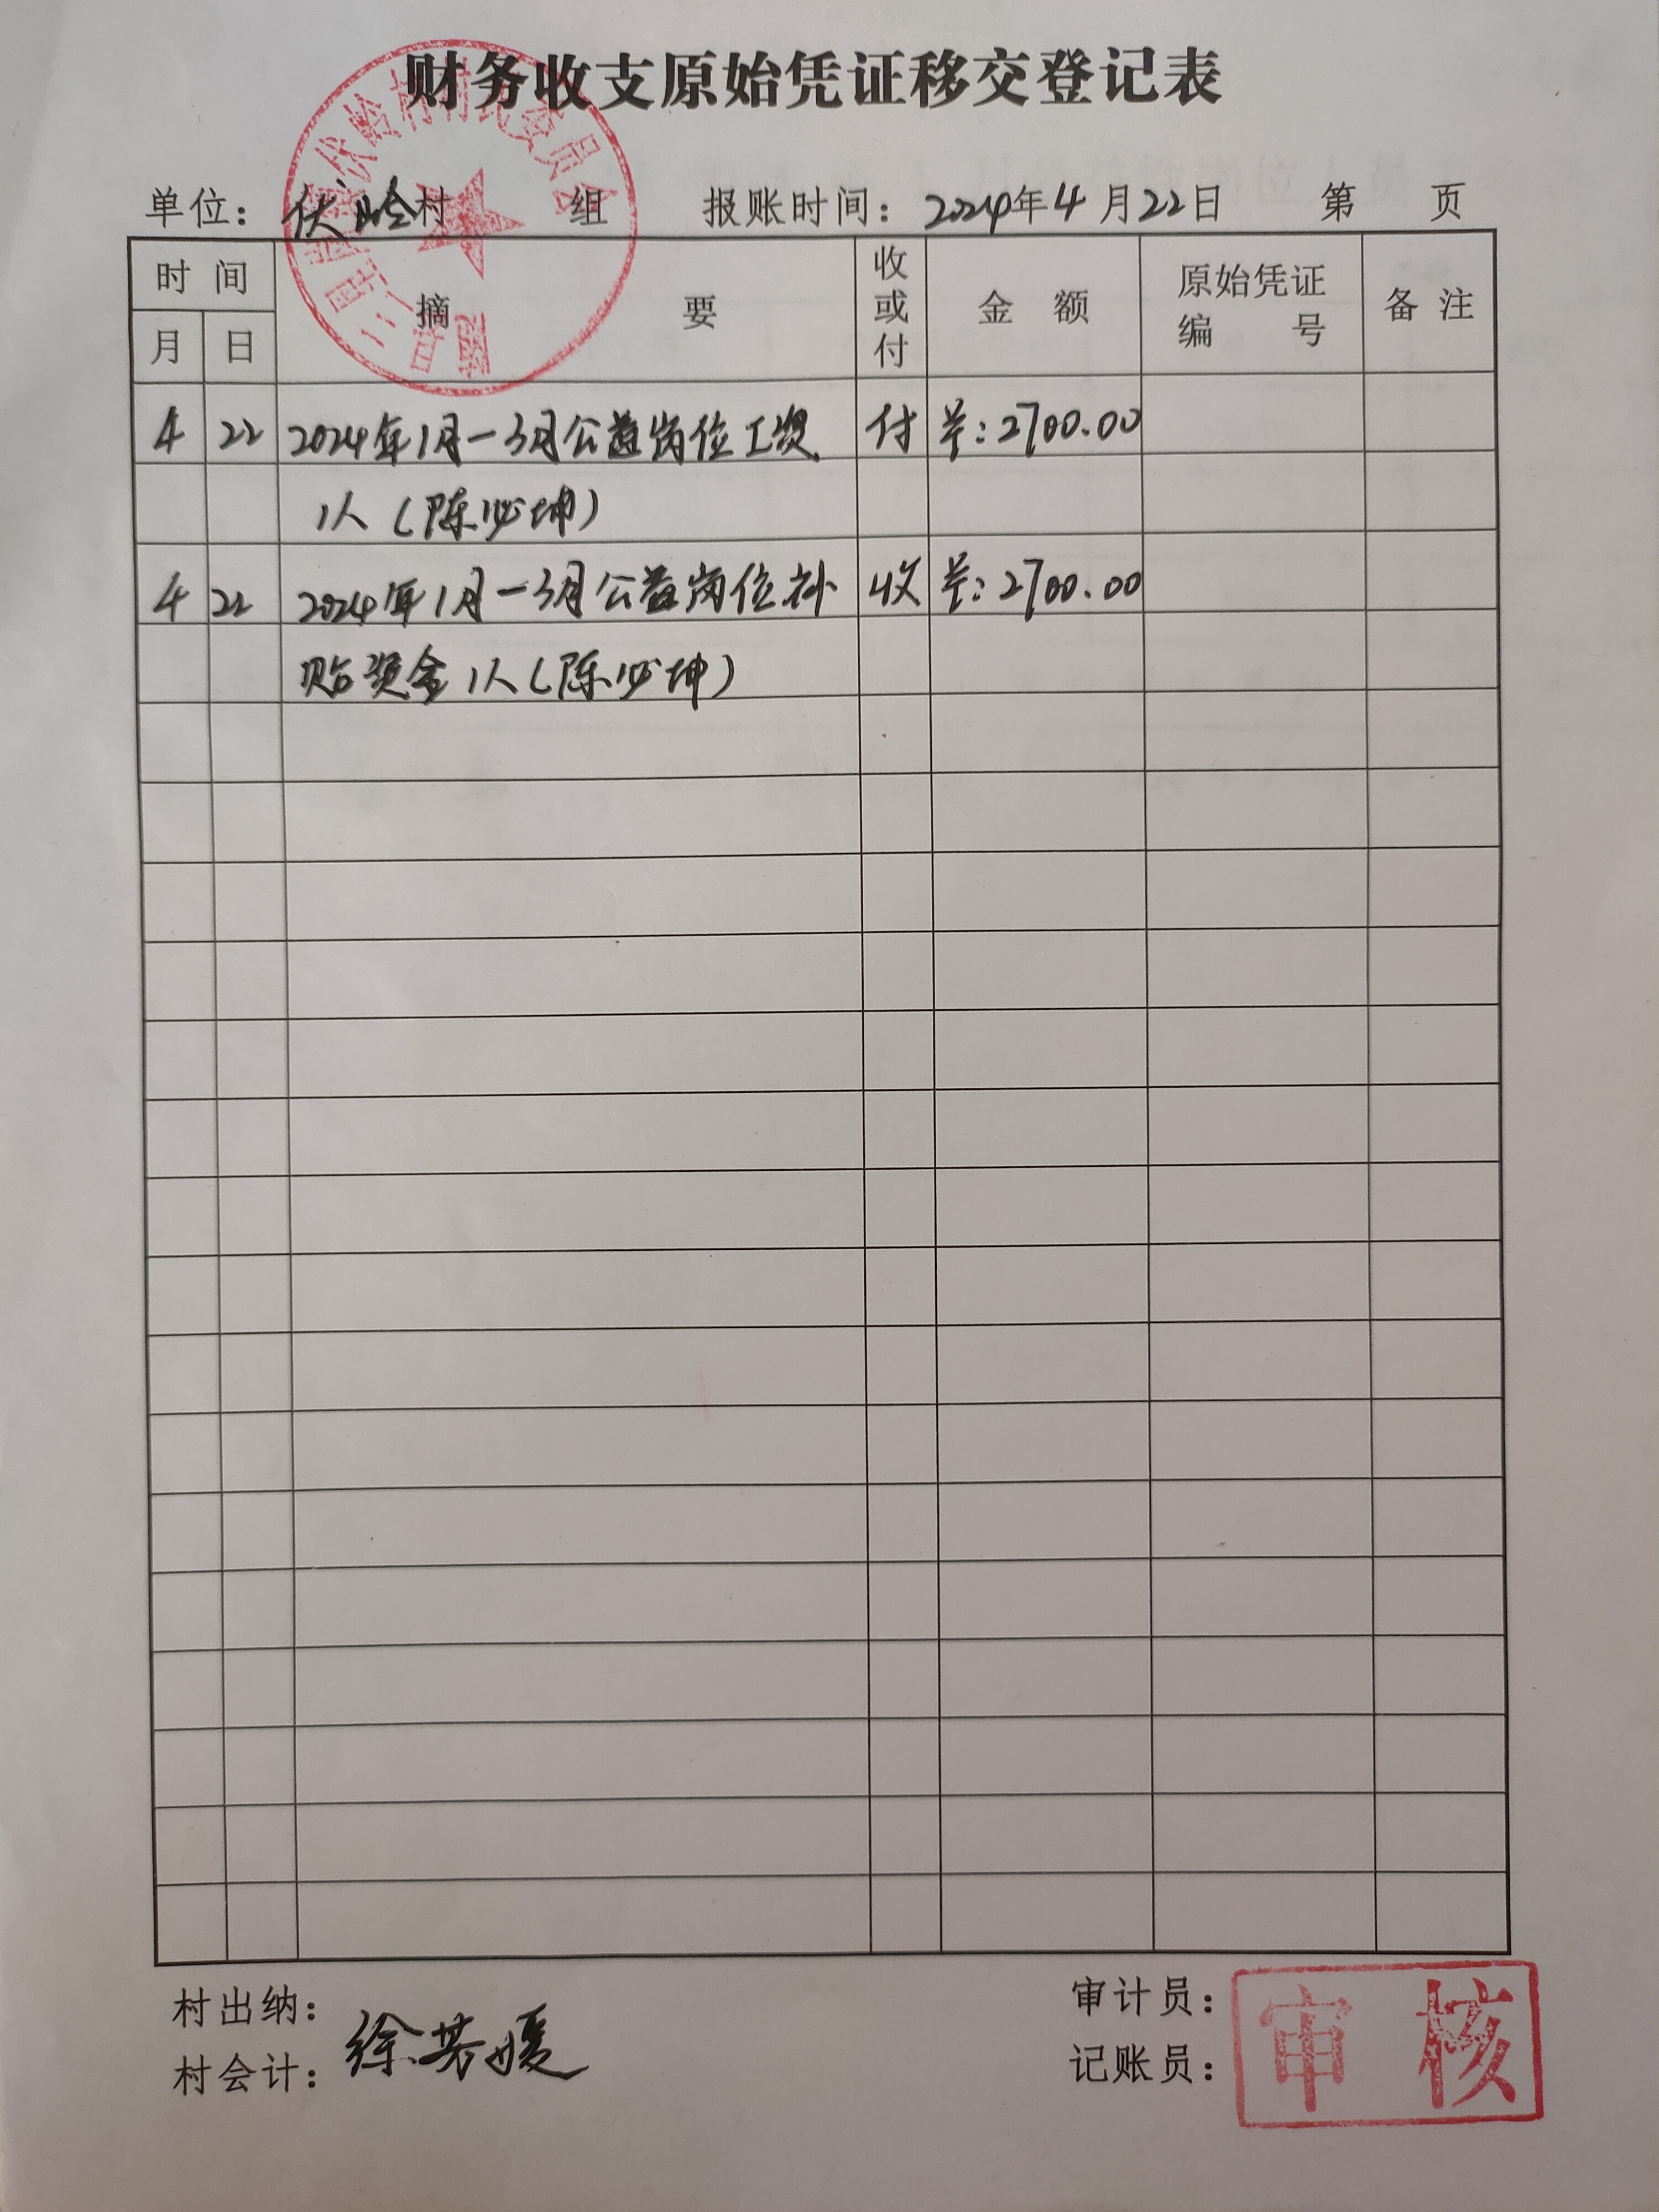 财务收支原始凭证移交登记表
单位：伏岭村 组 报账时间：2024年4月22日 第 页
时间 摘要 收或付 金额 原始凭证编号 备注
月 日
4 22 2024年1月-3月公益岗位工资 付 2700.00
1人（陈必坤）
4 22 2024年1月-3月公益岗位补 收 2700.00
贴资金1人（陈必坤）
村出纳： 审计员：
村会计： 记账员：
审核